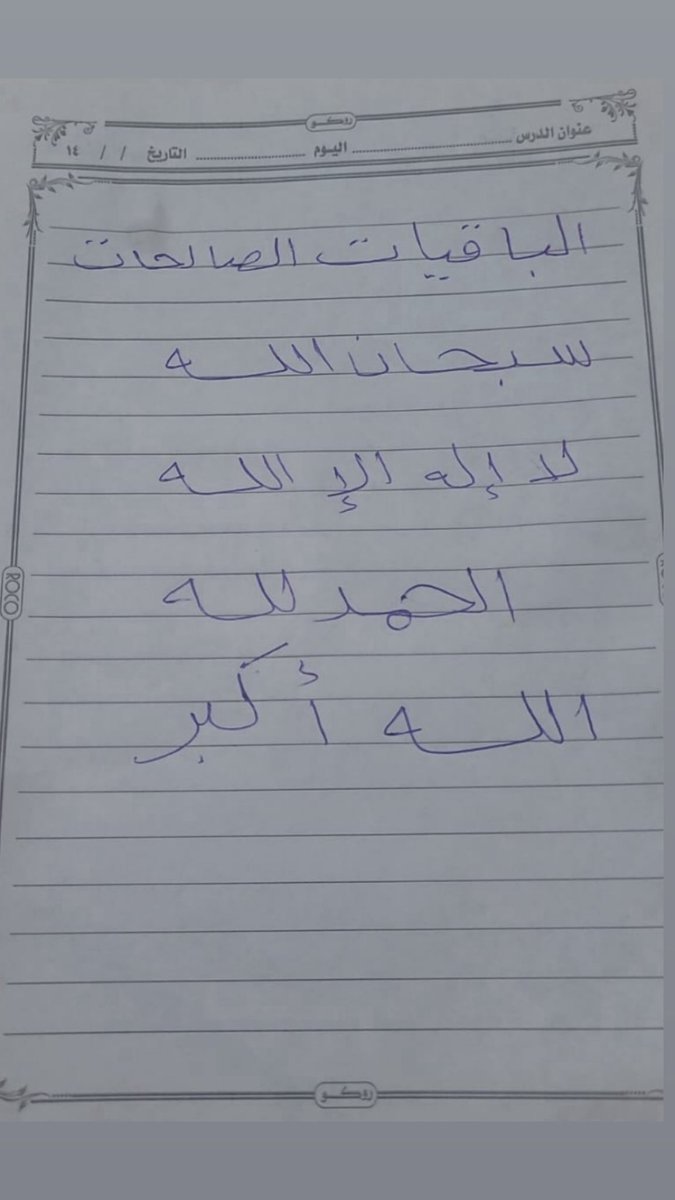 روكو
عنوان الدرس ........ اليوم ........ التاريخ / / ١٤
الباقيات الصالحات
سبحان الله
لا إله إلا الله
الحمد لله
الله أكبر
ROCO
روكو